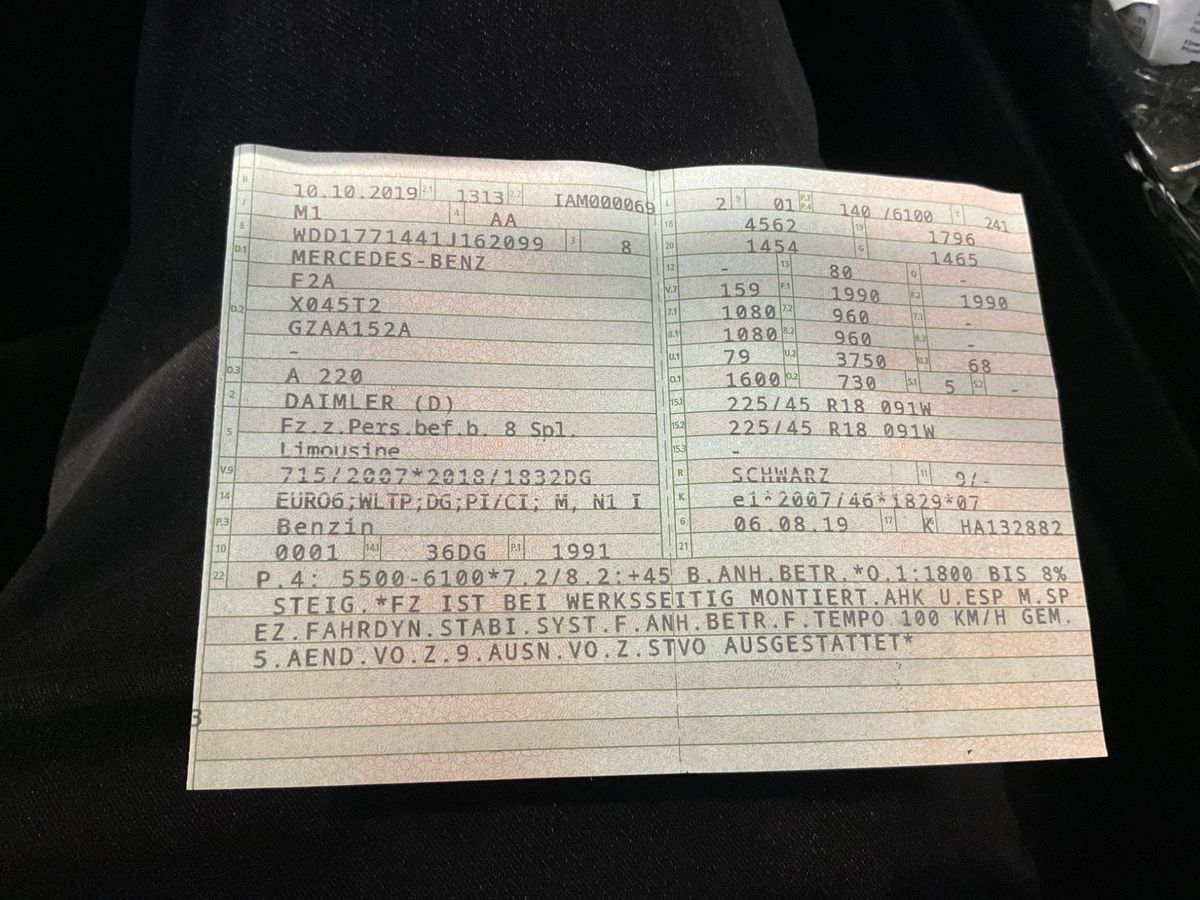 B 10.10.2019 2.1 1313 2.2 IAM000069
J M1 4 AA
E WDD1771441J162099 3 8
D.1 MERCEDES-BENZ
F2A
D.2 X045T2
GZAA152A
-
D.3 A 220
2 DAIMLER (D)
5 Fz.z.Pers.bef.b. 8 Spl.
Limousine
V.9 715/2007*2018/1832DG
14 EURO6;WLTP;DG;PI/CI; M, N1 I
P.3 Benzin
10 0001 14.1 36DG P.1 1991
L 2 9 01 P.2 P.4 140 /6100 T 241
18 4562 19 1796
20 1454 G 1465
12 - 13 80 Q -
V.7 159 F.1 1990 F.2 1990
7.1 1080 7.2 960 7.3 -
8.1 1080 8.2 960 8.3 -
U.1 79 U.2 3750 U.3 68
O.1 1600 O.2 730 S.1 5 S.2 -
15.1 225/45 R18 091W
15.2 225/45 R18 091W
15.3 -
R SCHWARZ 11 9/-
K e1*2007/46*1829*07
6 06.08.19 17 K 16 HA132882
21
22 P.4: 5500-6100*7.2/8.2:+45 B.ANH.BETR.*O.1:1800 BIS 8%
STEIG.*FZ IST BEI WERKSSEITIG MONTIERT.AHK U.ESP M.SP
EZ.FAHRDYN.STABI.SYST.F.ANH.BETR.F.TEMPO 100 KM/H GEM.
5.AEND.VO.Z.9.AUSN.VO.Z.STVO AUSGESTATTET*